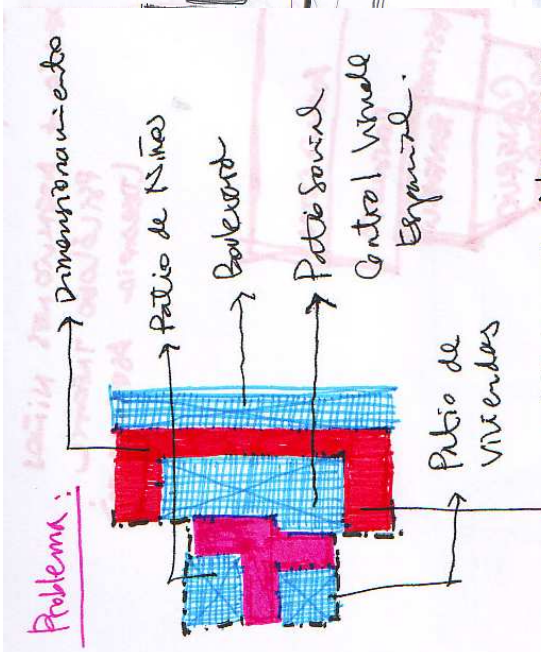 Problema:
Dimensionamiento
Patio de Niños
Boulevard
Patio Social
Control Visual
Espacial.
Patio de
viviendas